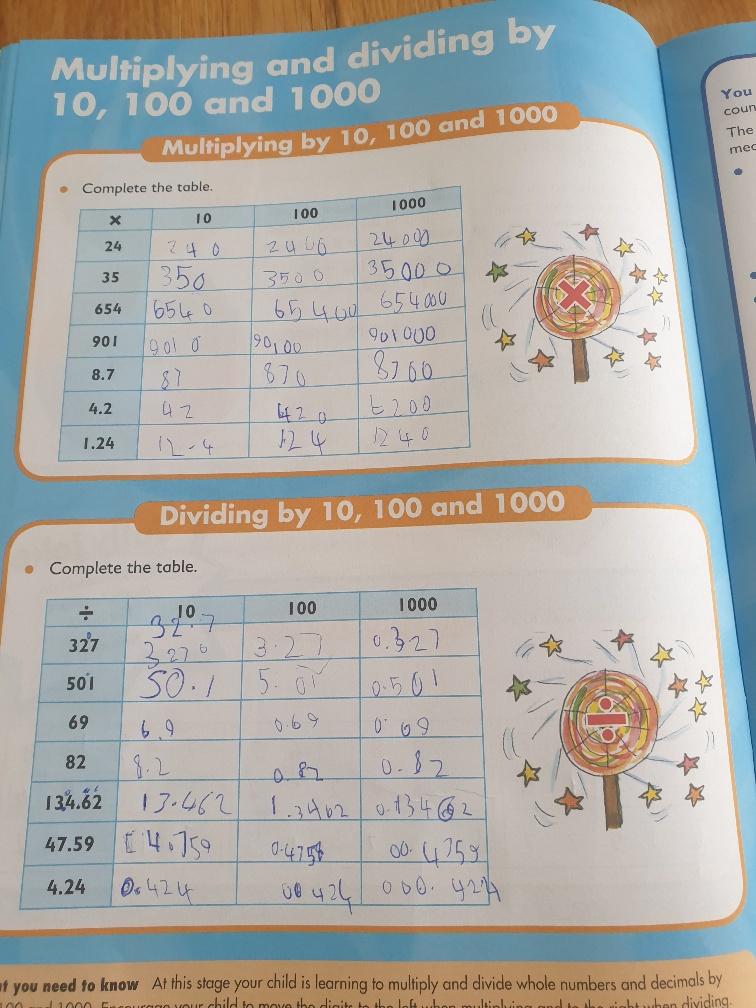 Multiplying and dividing by
10, 100 and 1000
You
coun
The
med
Multiplying by 10, 100 and 1000
Complete the table.
× 10 100 1000
24 240 2400 24000
35 350 3500 35000
654 6540 65400 654000
901 9010 90100 901000
8.7 87 870 8700
4.2 42 420 200
1.24 12.4 124 1240
Dividing by 10, 100 and 1000
Complete the table.
÷ 10 100 1000
32.7
327 3270 3.27 0.327
501 50.1 5.01 0.501
69 6.9 0.69 0.69
82 8.2 0.82 0.82
134.62 13.462 1.3462 0.13462
47.59 4.759 0.4759 00.4759
4.24 0.424 00424 000.424
t you need to know At this stage your child is learning to multiply and divide whole numbers and decimals by
100 and 1000. Encourage your child to move the digits to the left when multiplying and to the right when dividing.